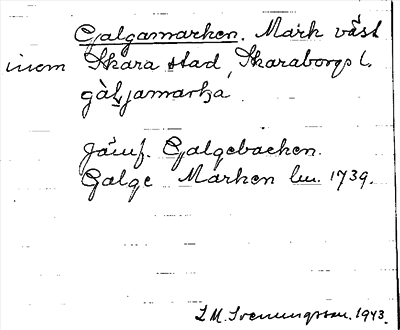 Galgamarken. Mark väst
inom Skara stad, Skaraborgs l.
gàḷjamarka
Jämf. Galgebacken.
Galge Marken lm. 1739.
L M. Svenungsson. 1943.